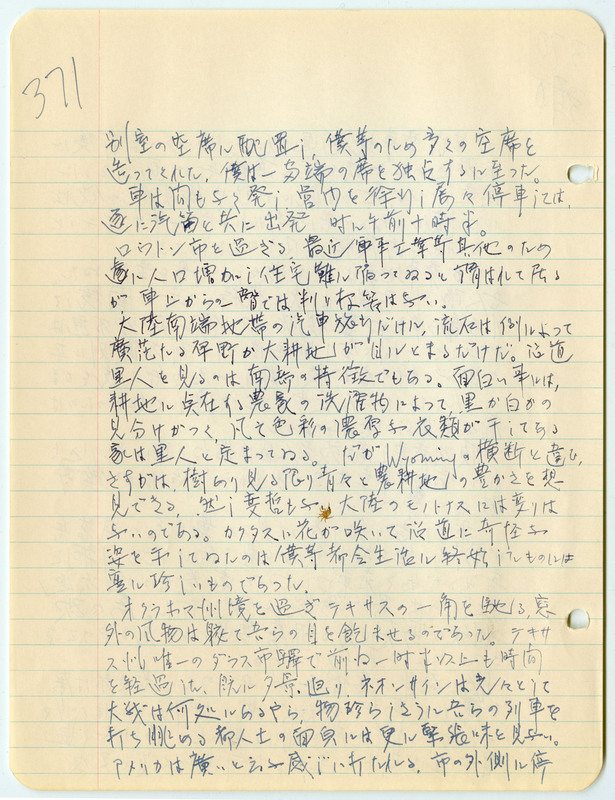 371
別室の空席に配置し、僕等のため多くの空席を
造ってくれた。僕は一多端の席を独占するに至った。
車は間もなく発し、営内を徐行し居々停車しては、
遂に汽笛と共に出発 時に午前十時半。
ロウトン市を過ぎる、最近軍事工業等其他のため
遽に人口増加し住宅難に陥ってゐると謂はれて居る
が車上からの一瞥では判り様筈はない。
大陸南端地帯の汽車旅行だけに、流石は例によって
廣茫たる平野か大耕地が目にとまるだけだ。沿道
黒人を見るのは南部の特徴でもある。面白い事には、
耕地に点在する農家の洗濯物によって、黒か白かの
見分けがつく、凡そ色彩の濃厚な衣類が干してある
家は黒人と定まってゐる。だがWyomingの横断と違ひ、
さすがは、樹あり見る限り青々と農耕地の豊かさを想
見できる、然し変哲もない大陸のモノトナスには変りは
ないのである。カクタスに花が咲いて沿道に奇怪な
姿を呈してゐたのは僕等都会生活に終始したものには
実に珍しいものであった。
オクラホマ州境を過ぎテキサスの一角を馳る、車
外の風物は続て吾らの目を飽ませるのであった。テキサ
ス州唯一のダラス市驛で前后一時半以上も時間
を経過した、既に夕景迫り、ネオンサインは光々として
大戦は何処にあるやら、物珍らしさうに吾らの列車を
打ち眺める都人士の面貌には更に緊張味を見ない。
アメリカは廣いと云ふ感じに打たれる、市の外側に停